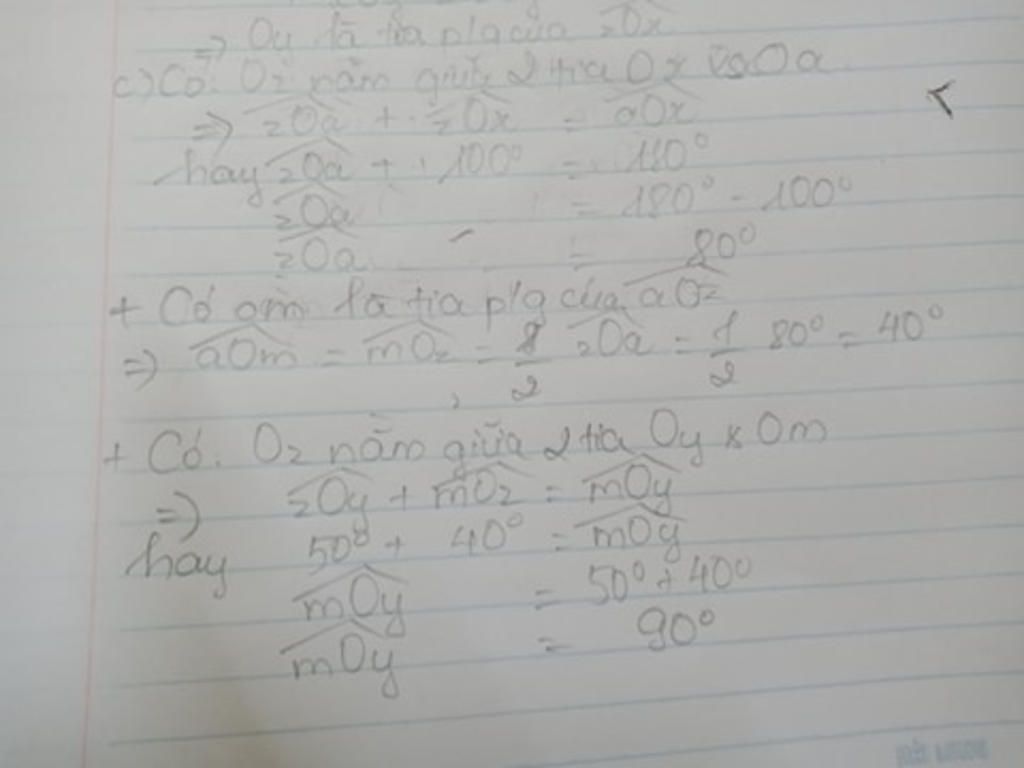 => Oy là tia p/g của zOx
c) Có: Oz nằm giữa 2 tia Ox và Oa
=> zOa + zOx = aOx
hay zOa + 100° = 180°
zOa = 180° - 100°
zOa = 80°
+ Có om là tia p/g của aOz
=> aOm = mOz = 1/2 zOa = 1/2 80° = 40°
+ Có: Oz nằm giữa 2 tia Oy & Om
=> zOy + mOz = mOy
hay 50° + 40° = mOy
mOy = 50° + 40°
mOy = 90°